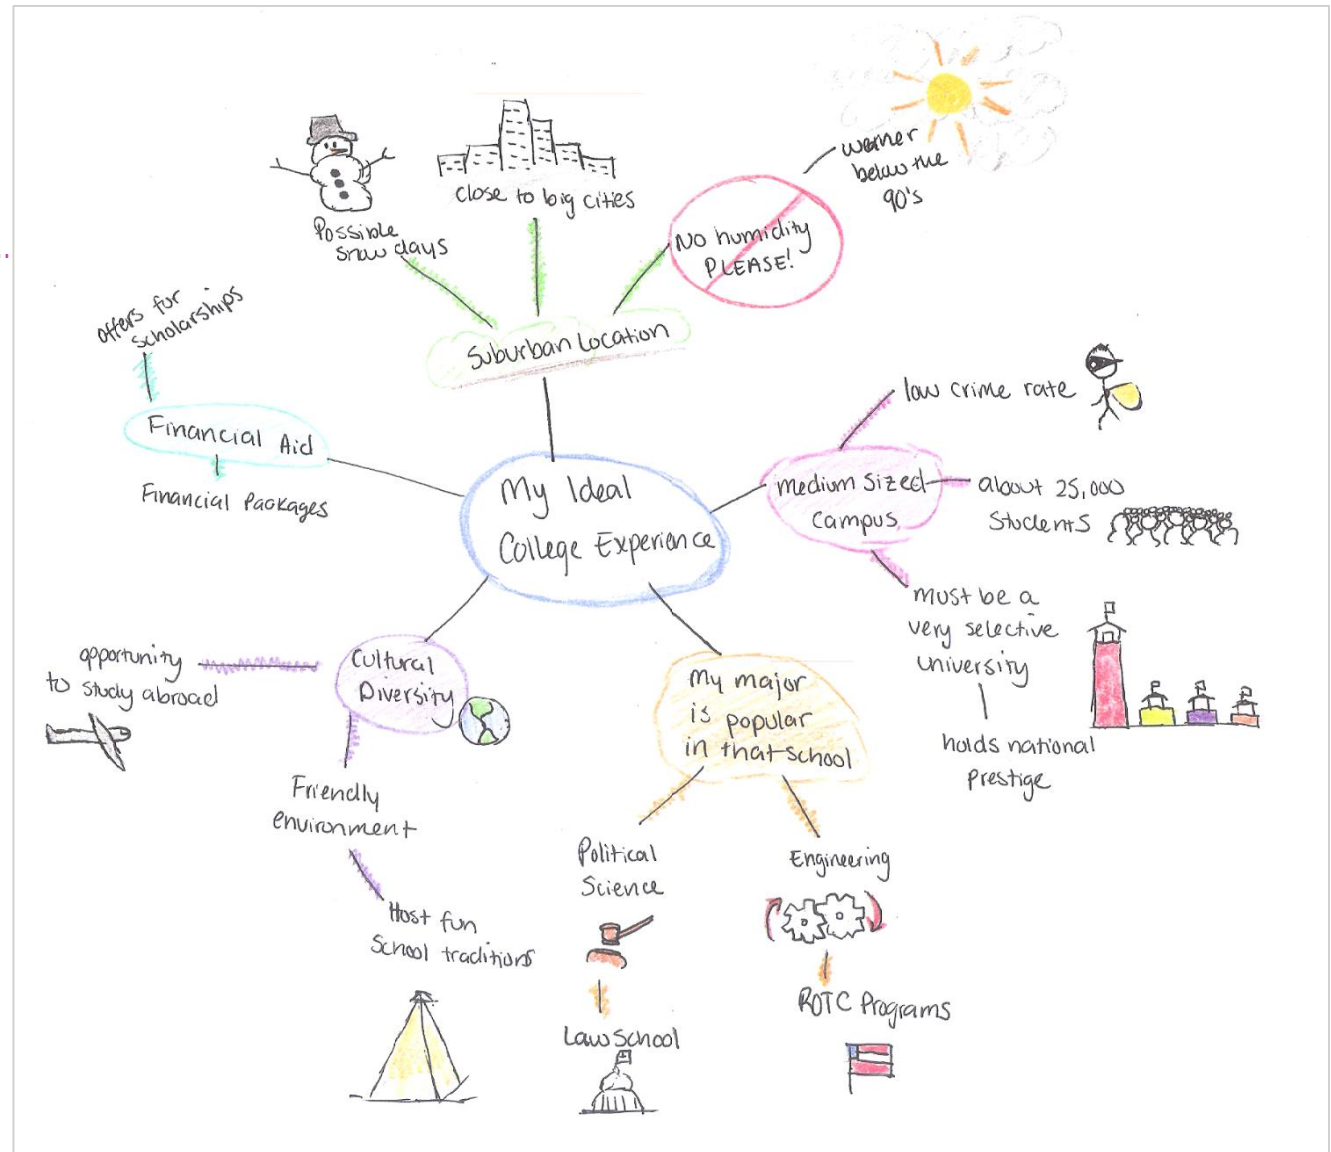 My Ideal
College Experience
Suburban Location
Possible
snow days
close to big cities
No humidity
PLEASE!
below the
90's
Medium Sized
Campus
low crime rate
about 25,000
Students
must be a
very selective
university
holds national
prestige
my major
is popular
in that school
Political
Science
Law School
Engineering
ROTC Programs
Cultural
Diversity
opportunity
to study abroad
Friendly
environment
Host fun
School traditions
Financial Aid
offers for
scholarships
Financial Packages